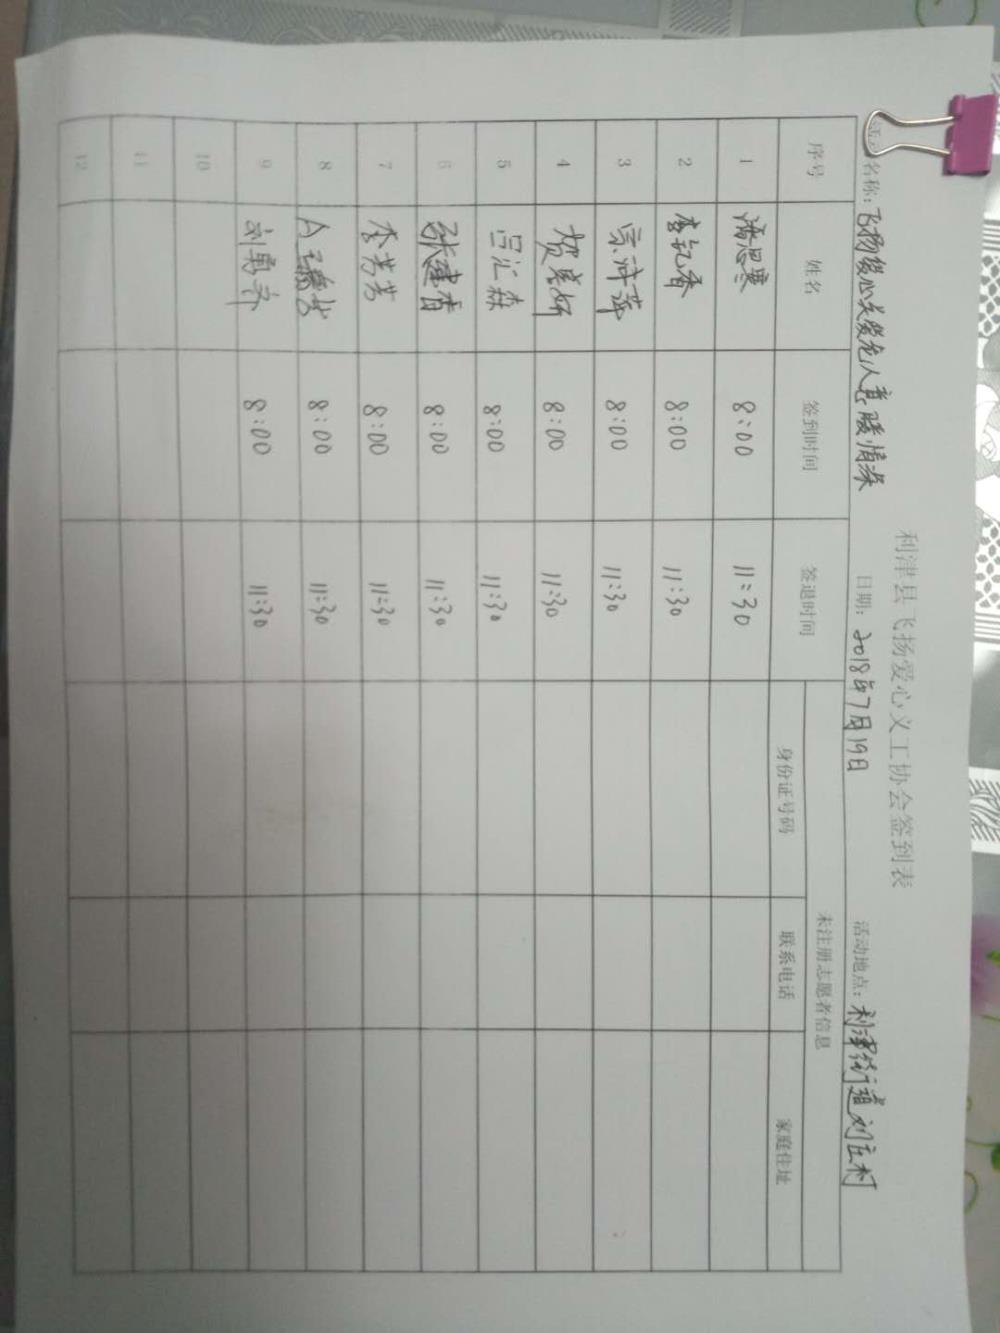 利津县飞扬爱心义工协会签到表
活动名称：飞扬爱心关爱老人意暖情深 日期：2018年7月19日 活动地点：利津街道刘庄村
序号 姓名 签到时间 签退时间 未注册志愿者信息
身份证号码 联系电话 家庭住址
1 潘思寒 8:00 11:30
2 李记香 8:00 11:30
3 8:00 11:30
4 贺美娇 8:00 11:30
5 吕汇森 8:00 11:30
6 张建香 8:00 11:30
7 李芳芳 8:00 11:30
8 8:00 11:30
9 8:00 11:30
10
11
12